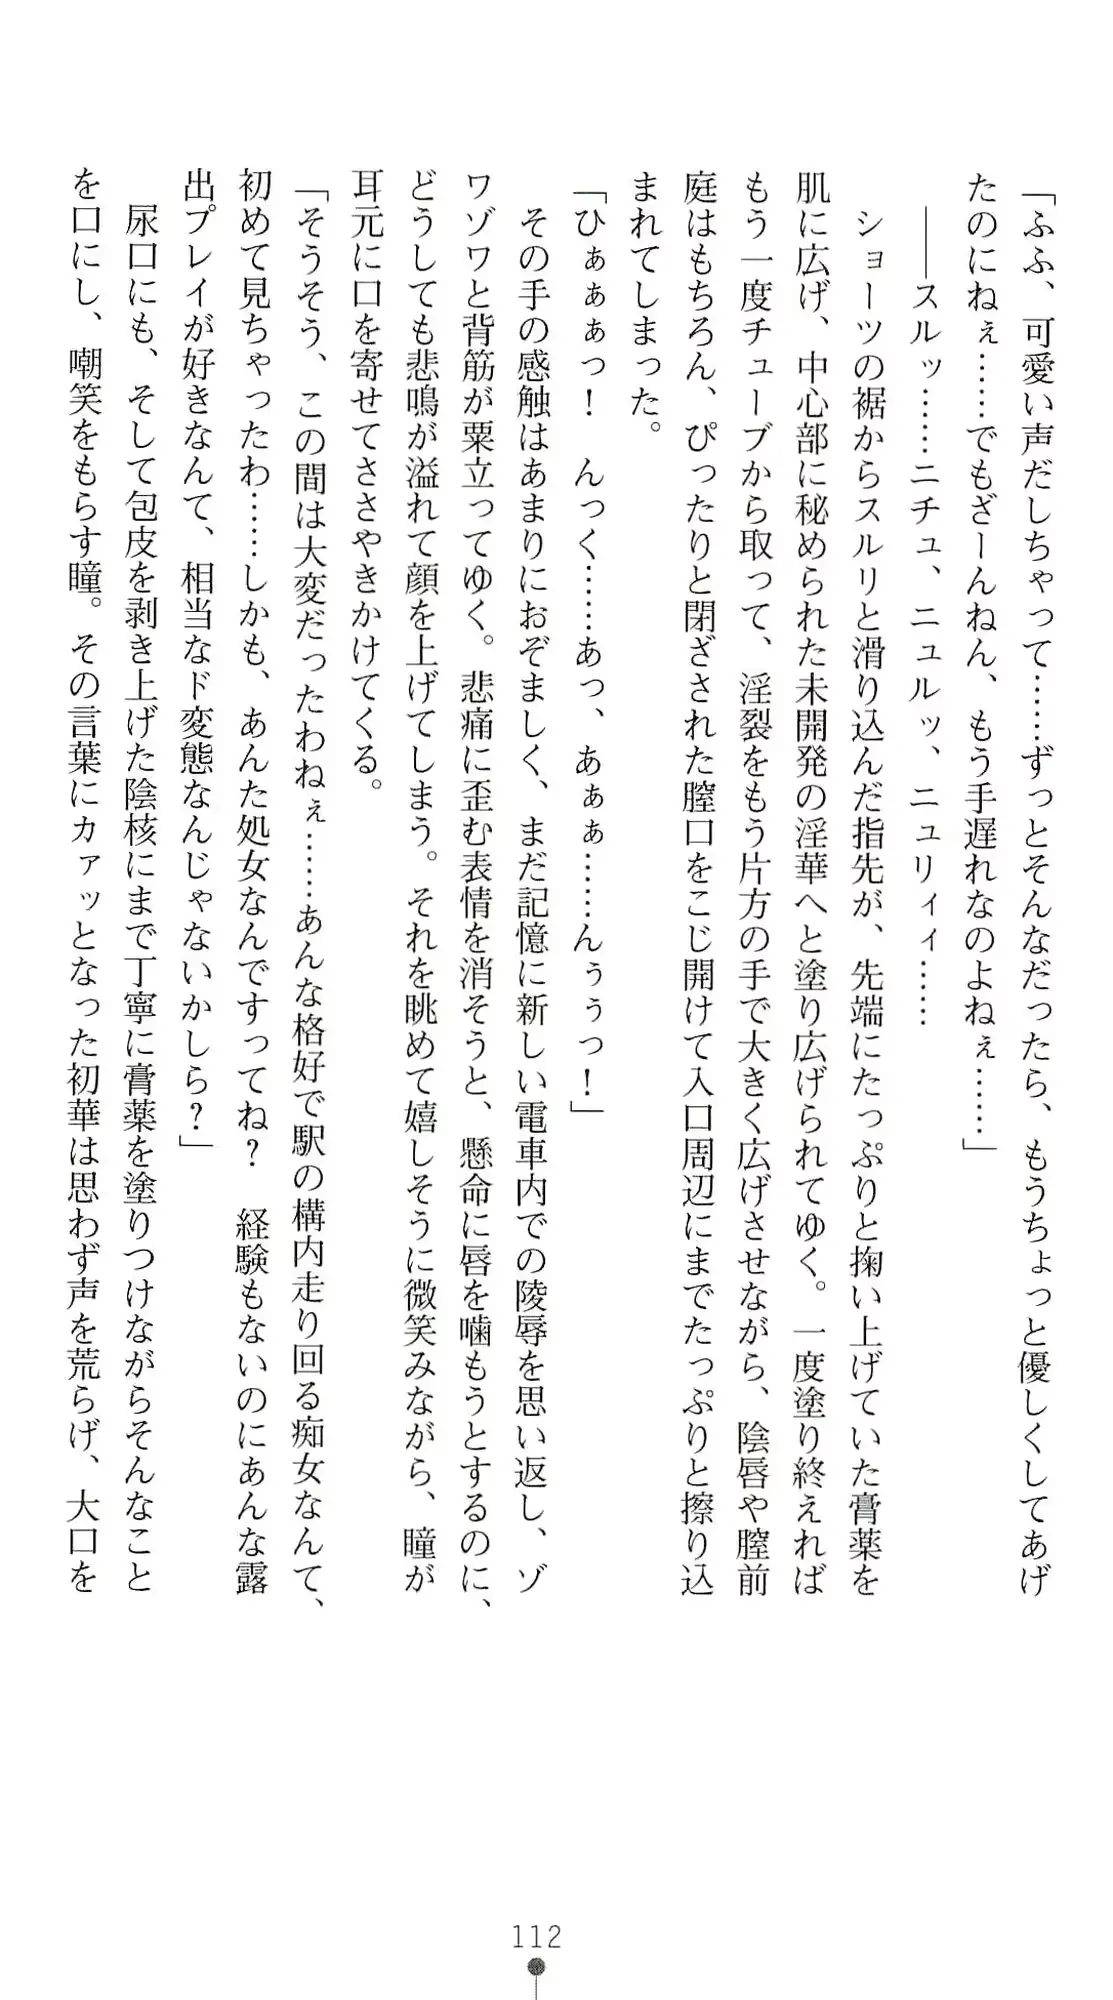 「ふふ、可愛い声だしちゃって……ずっとそんなだったら、もうちょっと優しくしてあげ
たのにねぇ……でもざーんねん、もう手遅れなのよねぇ……」
――スルッ……ニチュ、ニュルッ、ニュリィィ……
ショーツの裾からスルリと滑り込んだ指先が、先端にたっぷりと掬い上げていた膏薬を
肌に広げ、中心部に秘められた未開発の淫華へと塗り広げられてゆく。一度塗り終えれば
もう一度チューブから取って、淫裂をもう片方の手で大きく広げさせながら、陰唇や膣前
庭はもちろん、ぴったりと閉ざされた膣口をこじ開けて入口周辺にまでたっぷりと擦り込
まれてしまった。
「ひぁぁぁっ！　んっく……あっ、あぁぁ……んぅぅっ！」
その手の感触はあまりにおぞましく、まだ記憶に新しい電車内での陵辱を思い返し、ゾ
ワゾワと背筋が粟立ってゆく。悲痛に歪む表情を消そうと、懸命に唇を噛もうとするのに、
どうしても悲鳴が溢れて顔を上げてしまう。それを眺めて嬉しそうに微笑みながら、瞳が
耳元に口を寄せてささやきかけてくる。
「そうそう、この間は大変だったわねぇ……あんな格好で駅の構内走り回る痴女なんて、
初めて見ちゃったわ……しかも、あんた処女なんですってね？　経験もないのにあんな露
出プレイが好きなんて、相当なド変態なんじゃないかしら？」
尿口にも、そして包皮を剥き上げた陰核にまで丁寧に膏薬を塗りつけながらそんなこと
を口にし、嘲笑をもらす瞳。その言葉にカァッとなった初華は思わず声を荒らげ、大口を
112